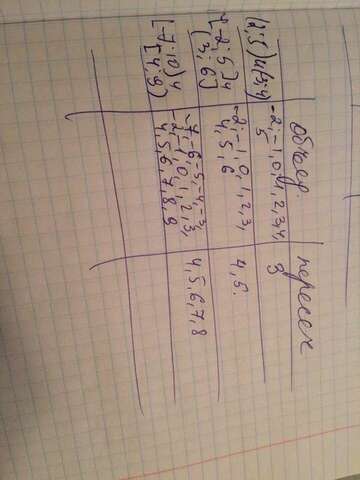 объед. пересеч
-2;-1,0,1,2,3,4, 3
5
[-2;5] и -2;-1,0,1,2,3, 4,5.
(3;6] 4,5,6
[-7;10) и -7,-6,-5,-4,-3, 4,5,6,7,8
[4;9) -2,-1,0,1,2,3,
4,5,6,7,8,9